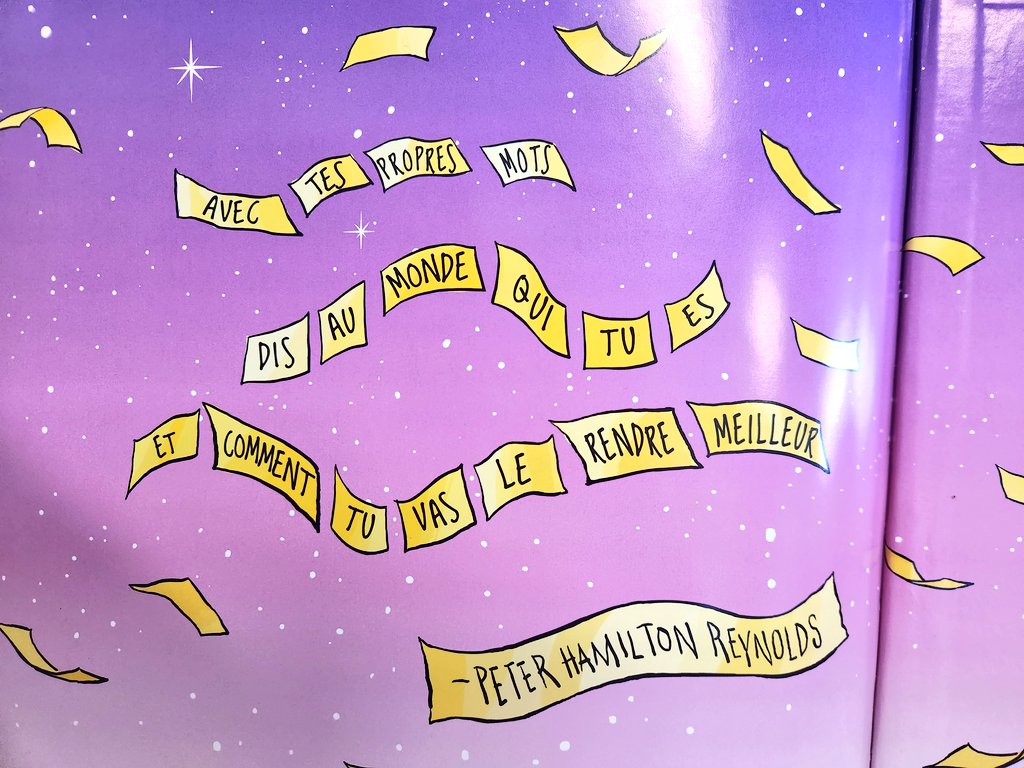 AVEC TES PROPRES MOTS
DIS AU MONDE QUI TU ES
ET COMMENT TU VAS LE RENDRE MEILLEUR
-PETER HAMILTON REYNOLDS